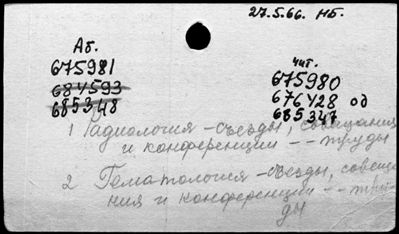 27.5.66. НБ.
Аб.
675981
684593
685348
чит.
675980
676428 од
685347
1 Радиология - съезды, совещания
и конференции -- труды
2 Гематология - съезды, совеща-
ния и конференции -- тру-
ды